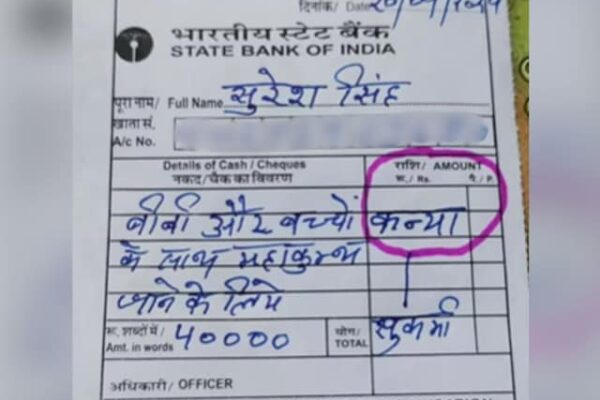 दिनांक/ Date
भारतीय स्टेट बैंक
STATE BANK OF INDIA
पूरा नाम/ Full Name सुरेश सिंह
खाता सं.
A/c No.
Details of Cash / Cheques राशि/ AMOUNT
नकद/चैक का विवरण रू./ Rs. पै./ P.
बीबी और बच्चों कन्या
के साथ महाकुम्भ
जाने के लिये
रू. शब्दों में/ 40000 योग/ सुकर्मा
Amt. in words TOTAL
अधिकारी/ OFFICER